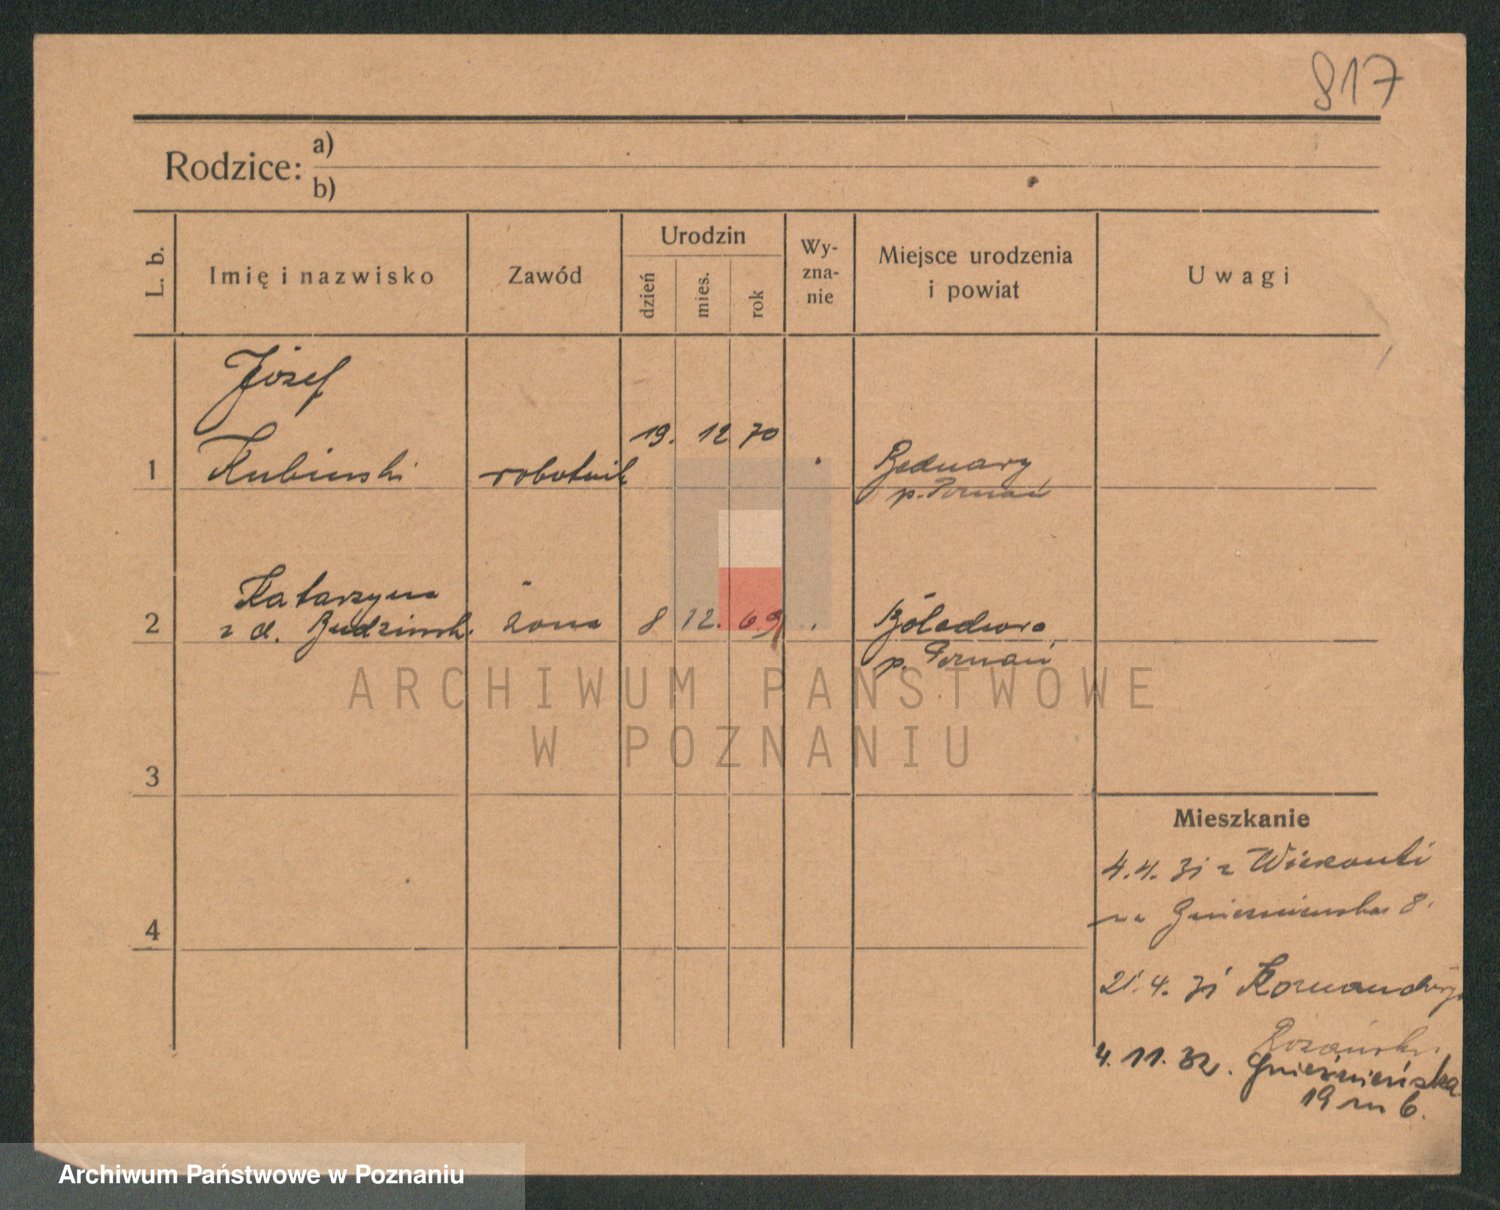 817
Rodzice: a)
b)
L. b.
Imię i nazwisko
Zawód
Urodzin
dzień
mies.
rok
Wy-
zna-
nie
Miejsce urodzenia
i powiat
Uwagi
Józef
1 Kubinski robotnik 19. 12 70 Bednary
p. Poznań
Katarzyna
2 z d. Budzinsk. żona 8 12. 69
p. Poznań
ARCHIWUM PAŃSTWOWE
W POZNANIU
3
Mieszkanie
4.4. 31 z
na Gnieznienska 8.
4
21.4. 31
4. 11. 32. Gnieźnieńska
19 m 6.
Archiwum Państwowe w Poznaniu